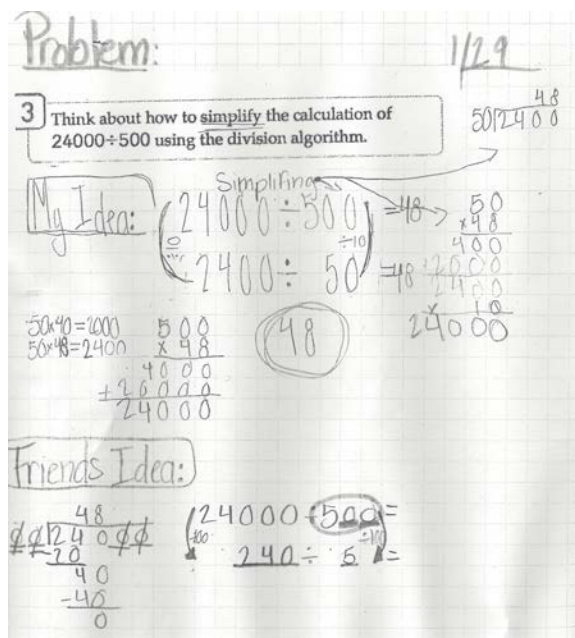 Problem:
1/29
3 Think about how to simplify the calculation of
24000÷500 using the division algorithm.
48
50)2400
Simplifing
My Idea:
24000÷500 =48
÷10 ÷10
2400÷ 50 =48
50
×48
400
+2000
2400
× 10
24000
50×40=2000
50×48=2400
500
×48
4000
+20000
24000
48
Friends Idea:
48
24000
-20
40
-40
0
24000÷500=
÷100 ÷100
240÷ 5 =